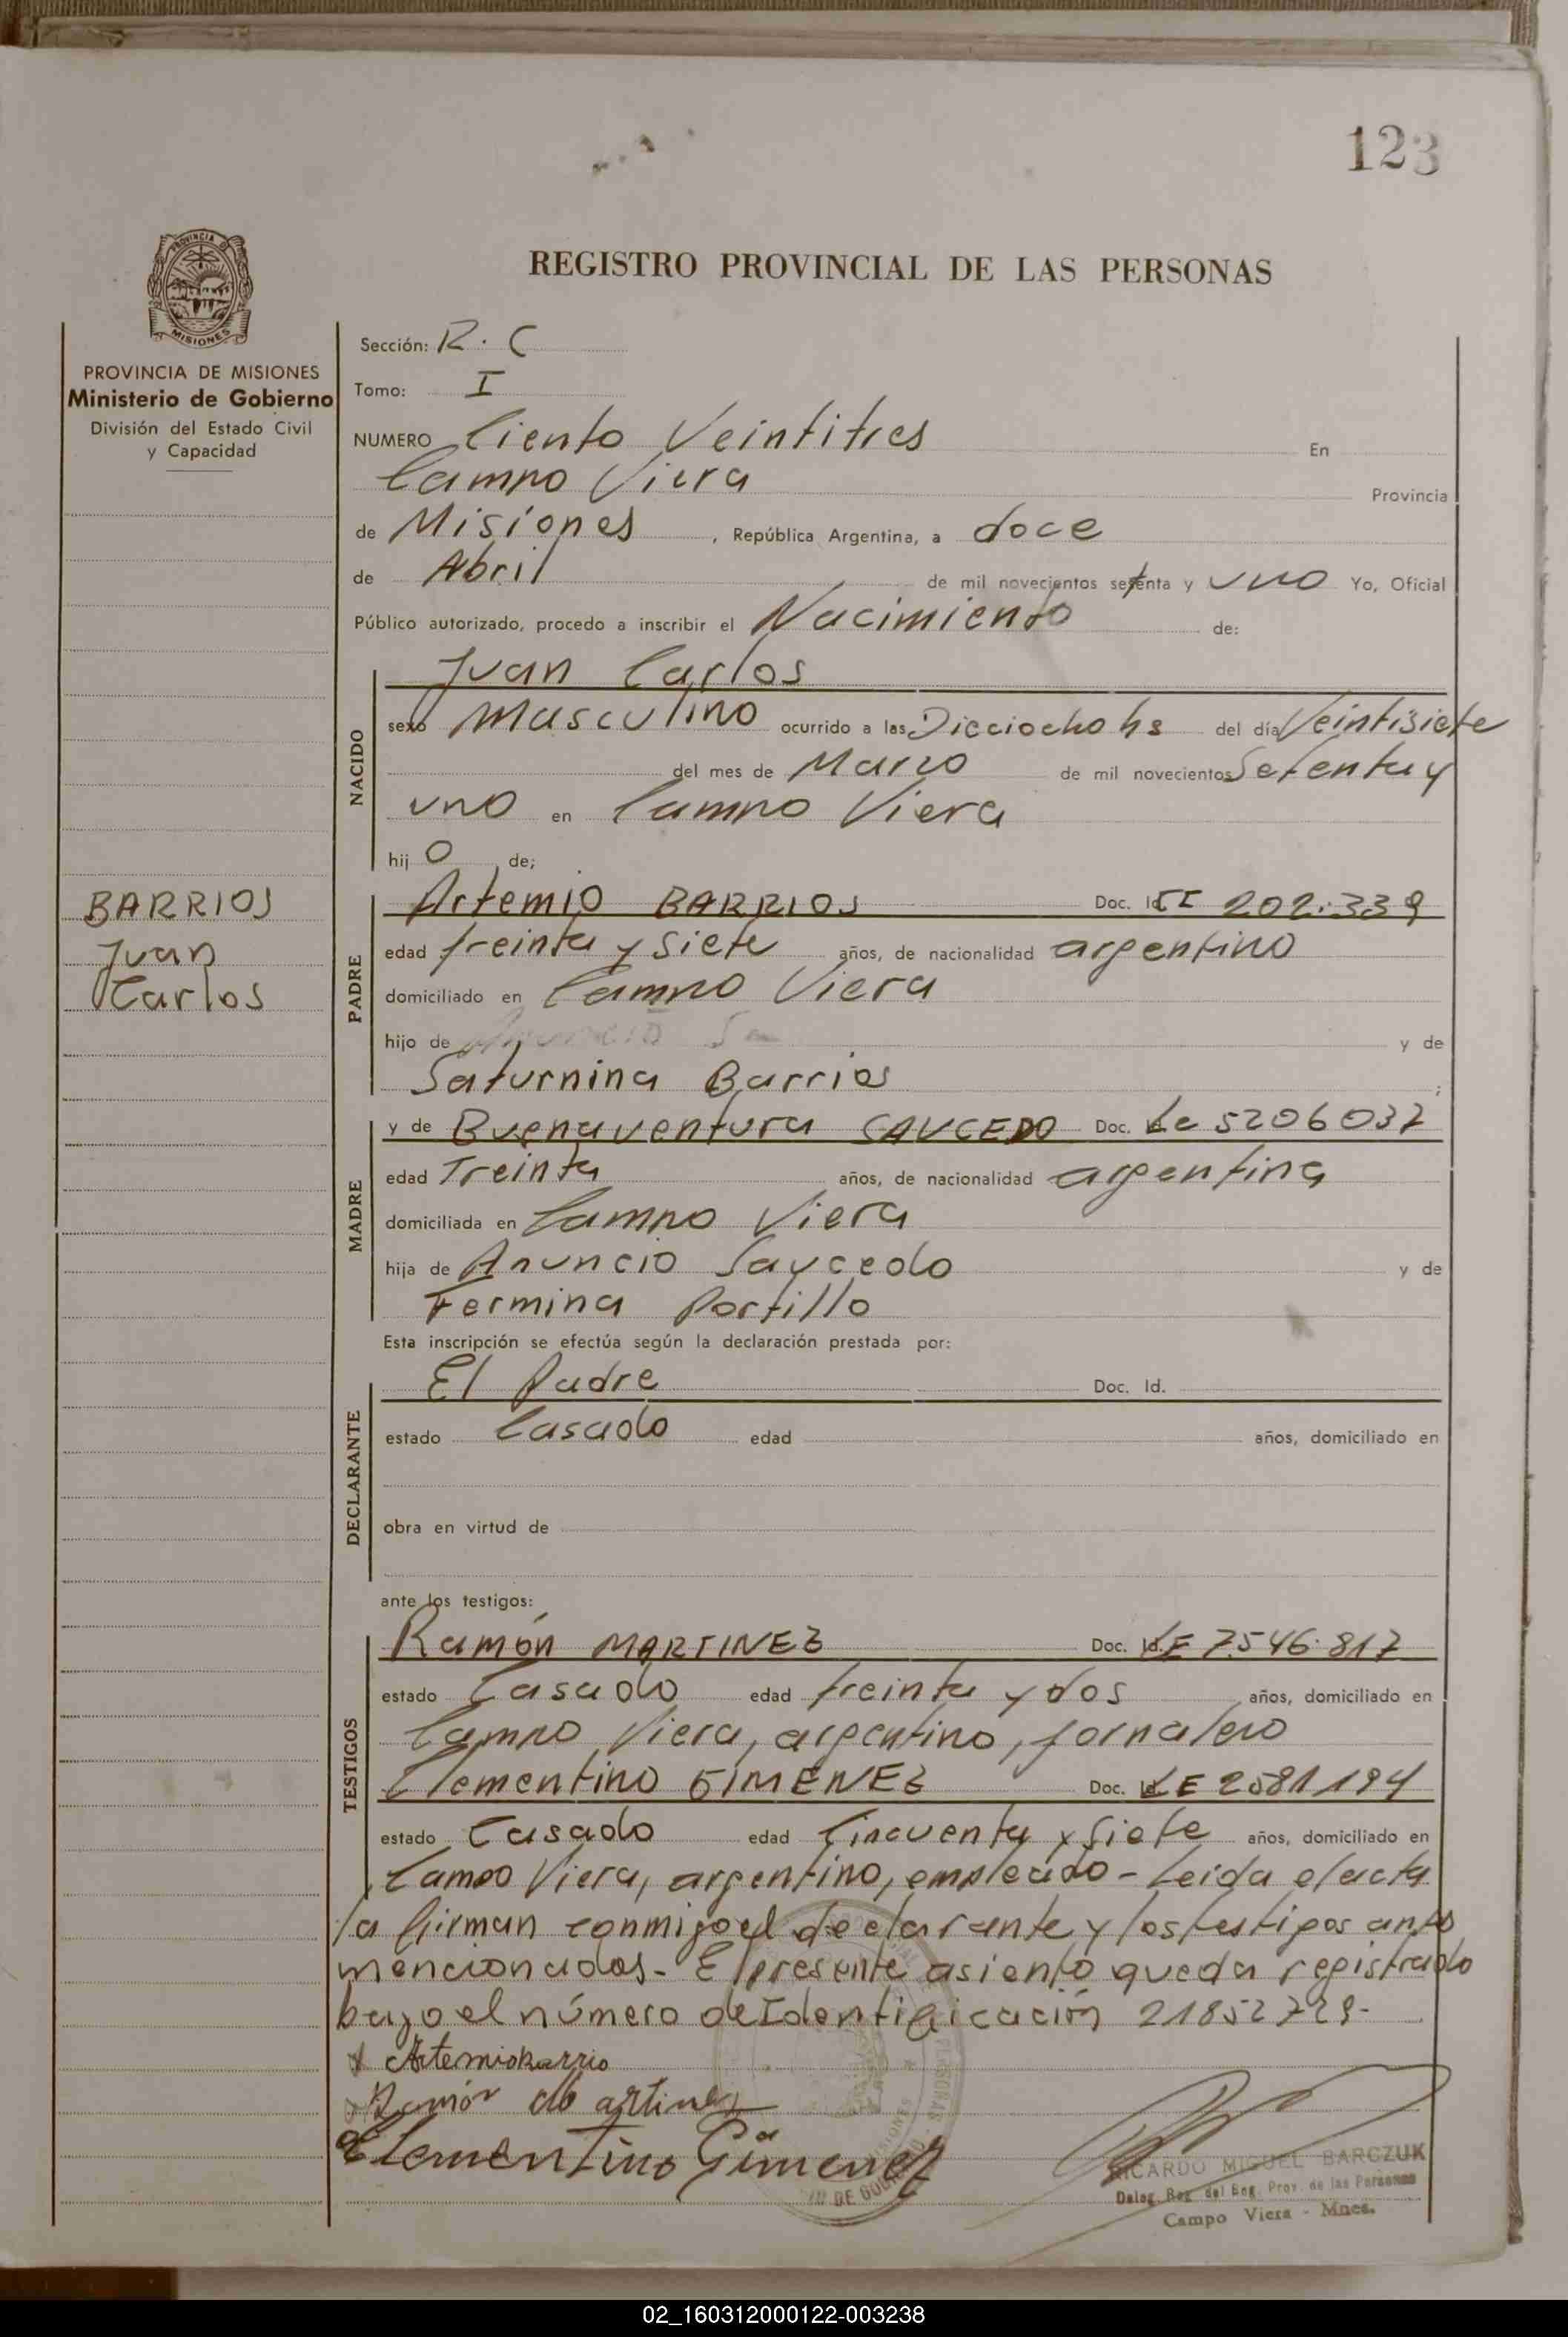 123
REGISTRO PROVINCIAL DE LAS PERSONAS
PROVINCIA DE MISIONES
Ministerio de Gobierno
División del Estado Civil
y Capacidad
Sección: R. C
Tomo: I
NUMERO Ciento Veintitres En
Campo Viera Provincia
de Misiones, República Argentina, a doce
de Abril de mil novecientos setenta y uno Yo, Oficial
Público autorizado, procedo a inscribir el Nacimiento de:
NACIDO
Juan Carlos
sexo Masculino ocurrido a las Dieciocho hs del día Veintisiete
del mes de Marzo de mil novecientos Setenta y
uno en Campo Viera
hijo de;
BARRIOS
Juan
Carlos
PADRE
Artemio BARRIOS Doc. Id. CI 202.339
edad treinta y siete años, de nacionalidad argentino
domiciliado en Campo Viera
hijo de y de
Saturnina Barrios ;
MADRE
y de Buenaventura SAUCEDO Doc. Lc 5206037
edad Treinta años, de nacionalidad argentina
domiciliada en Campo Viera
hija de Anuncio Saucedo y de
Fermina Portillo
Esta inscripción se efectúa según la declaración prestada por:
DECLARANTE
El Padre Doc. Id.
estado Casado edad años, domiciliado en
obra en virtud de
ante los testigos:
TESTIGOS
Ramón MARTINEZ Doc. LE 7.546.817
estado Casado edad treinta y dos años, domiciliado en
Campo Viera, argentino, jornalero
Clementino GIMENEZ Doc. LE 2581194
estado Casado edad Cincuenta y Siete años, domiciliado en
Campo Viera, argentino, empleado - Leida el acta
la firman conmigo el declarante y los testigos antes
mencionados - El presente asiento queda registrado
bajo el número de Identificación 21852729-
Artemio Barrio
Ramón Martinez
Clementino Gimenez
RICARDO MIGUEL BARCZUK
Deleg. Reg. del Reg. Prov. de las Personas
Campo Viera - Mnes.
02_160312000122-003238